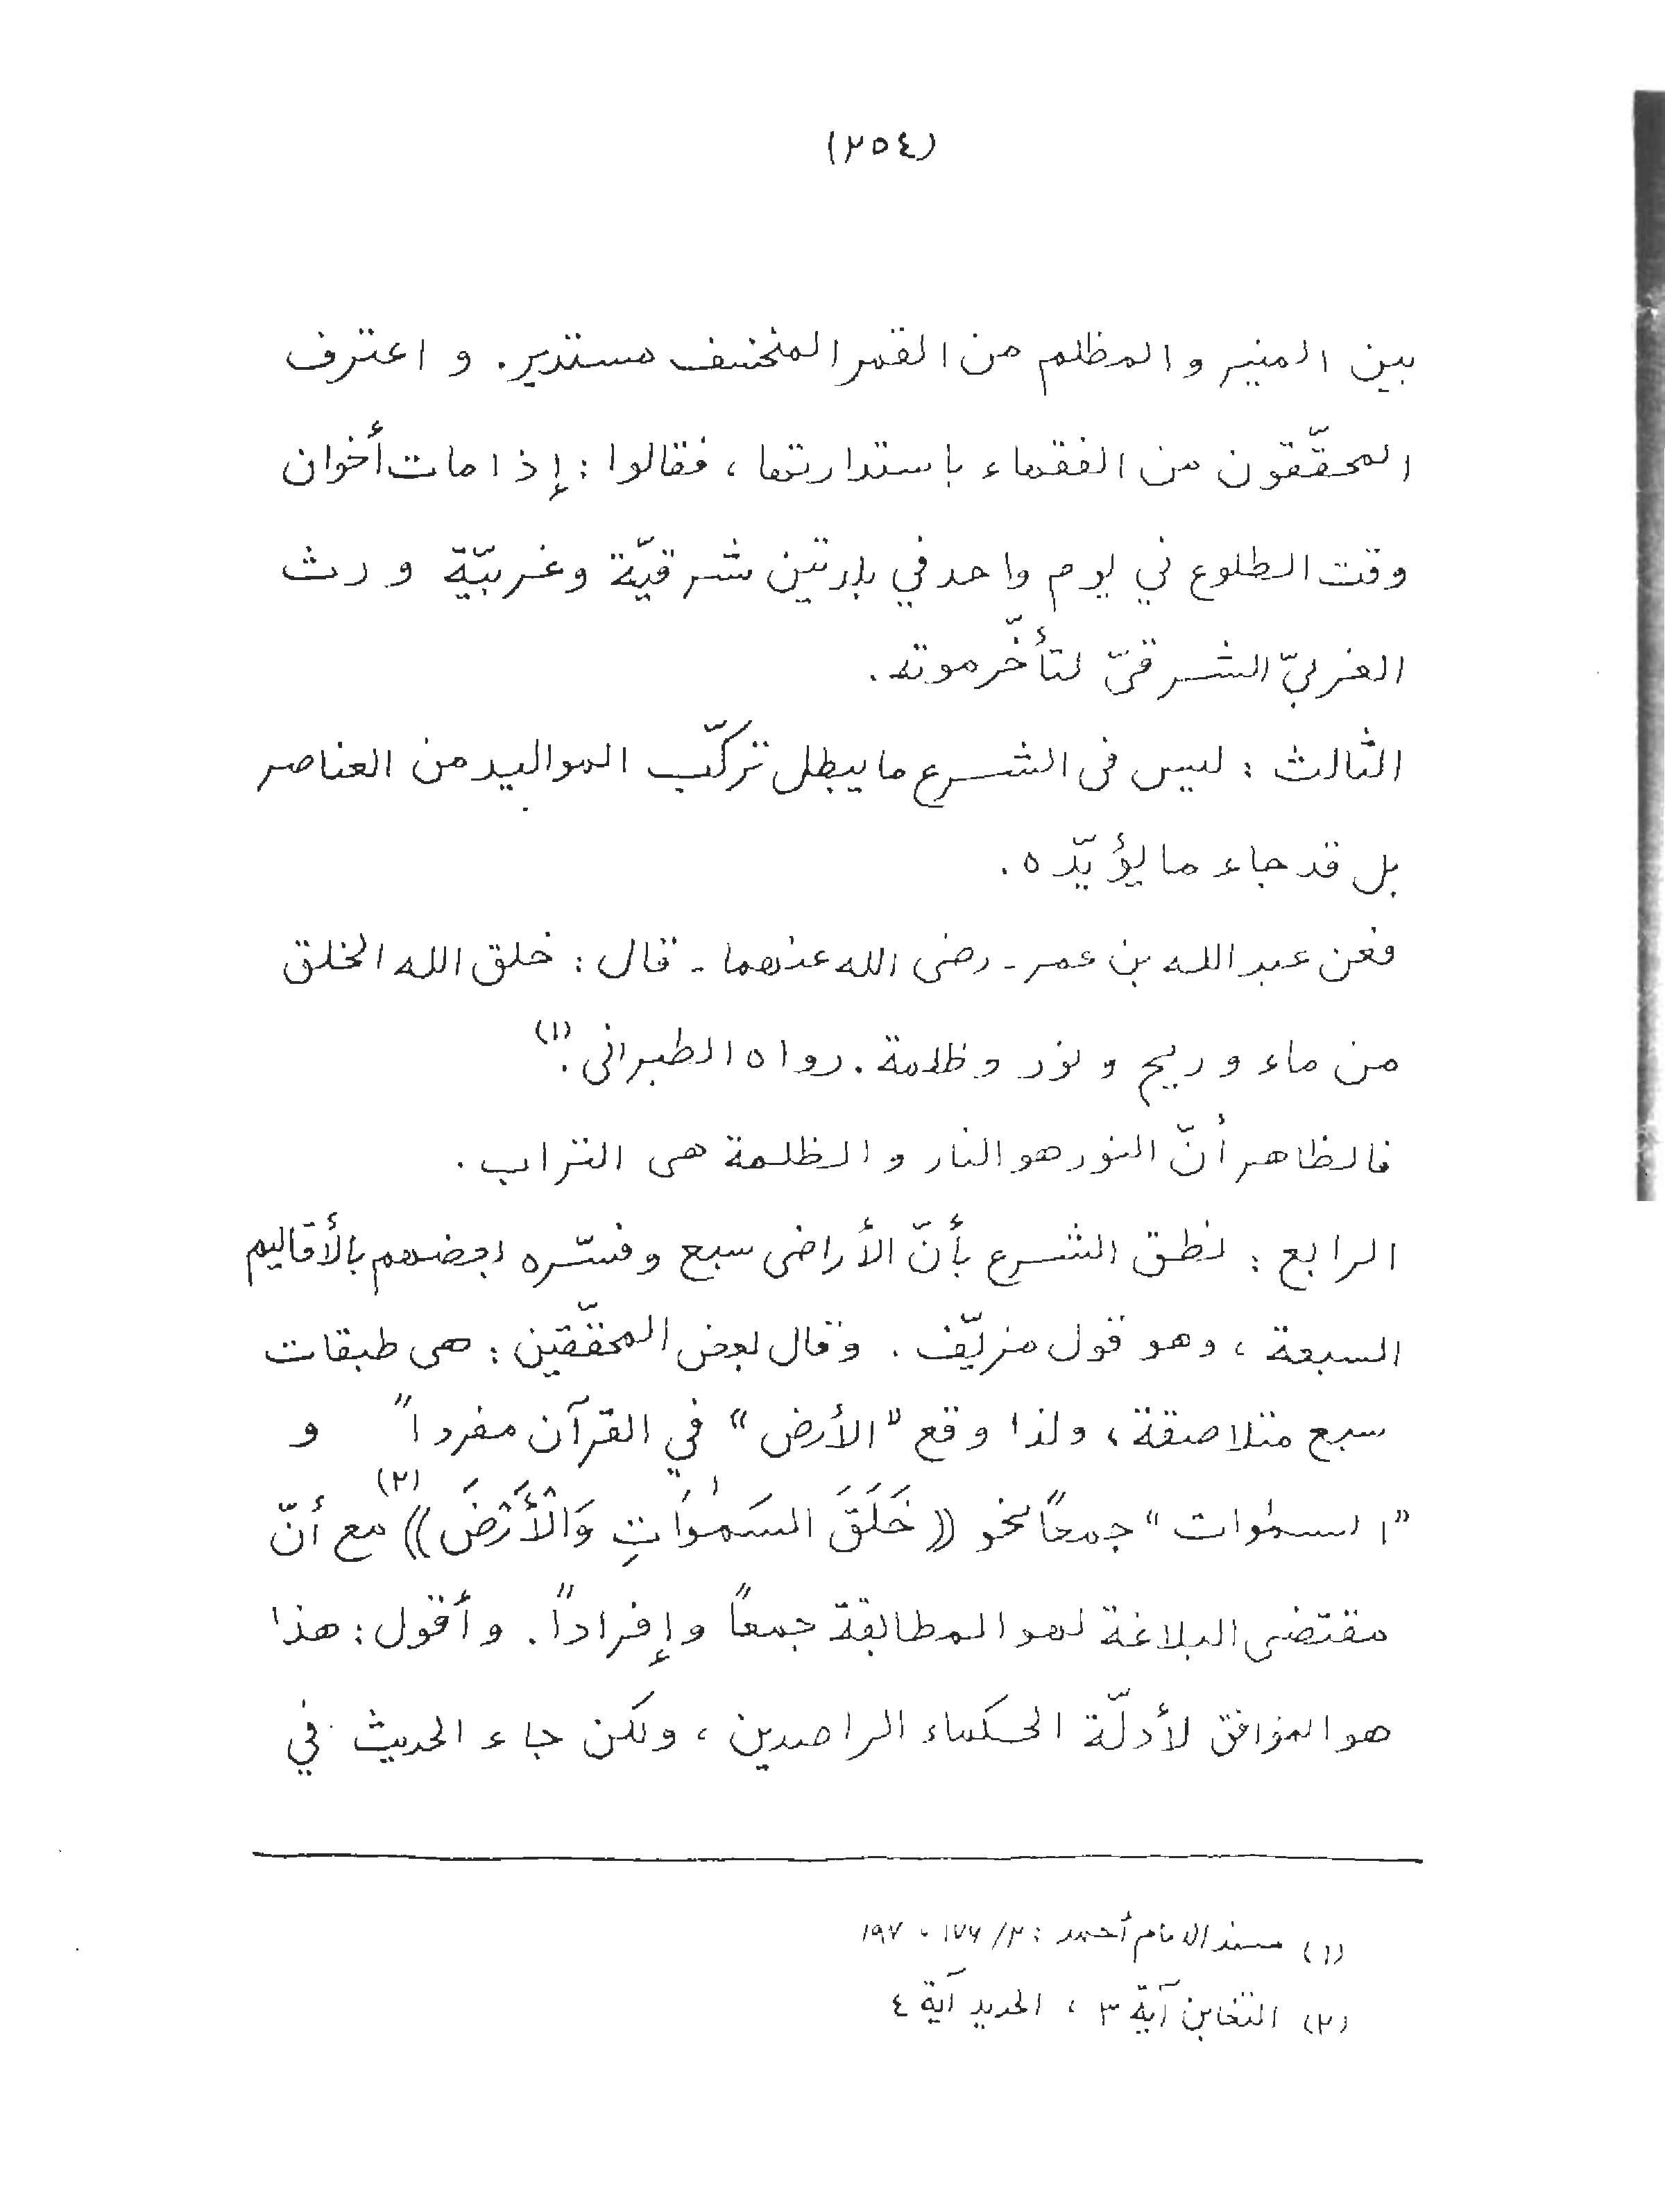 (٢٥٤)
بين المنير والمظلم من القمر المنخسف مستدير. و اعترف
المحقّقون من الفقهاء باستدارتها ، فقالوا : إذا مات أخوان
وقت الطلوع في يوم واحد في بلدتين شرقيّة وغربيّة ورث
الغربيّ الشرقيّ لتأخّر موته .
الثّالث : ليس فى الشرع ما يبطل تركّب المواليد من العناصر
بل قد جاء ما يؤيّده .
فعن عبد الله بن عمر - رضى الله عنهما - قال : خلق الله الخلق
من ماء وريح ونور وظلمة . رواه الطبرانى .(١)
فالظاهر أنّ النور هو النار والظلمة هى التراب .
الرابع : نطق الشرع بأنّ الأراضى سبع وفسّره بعضهم بالأقاليم
السبعة ، وهو قول مزيّف . وقال بعض المحقّقين : هى طبقات
سبع متلاصقة ، ولذا وقع "الأرض" في القرآن مفرداً و
"السمٰوات" جمعاً نحو ((خَلَقَ السَمٰوَاتِ وَالْأَرْضَ))(٢) مع أنّ
مقتضى البلاغة لهو المطابقة جمعاً وإفراداً . وأقول : هذا
هو الموافق لأدلّة الحكماء الراصدين ، ولكن جاء الحديث في
(١) مسند الامام أحمد : ٢/ ١٧٦ ، ١٩٧
(٢) التغابن آية ٣ ، الحديد آية ٤